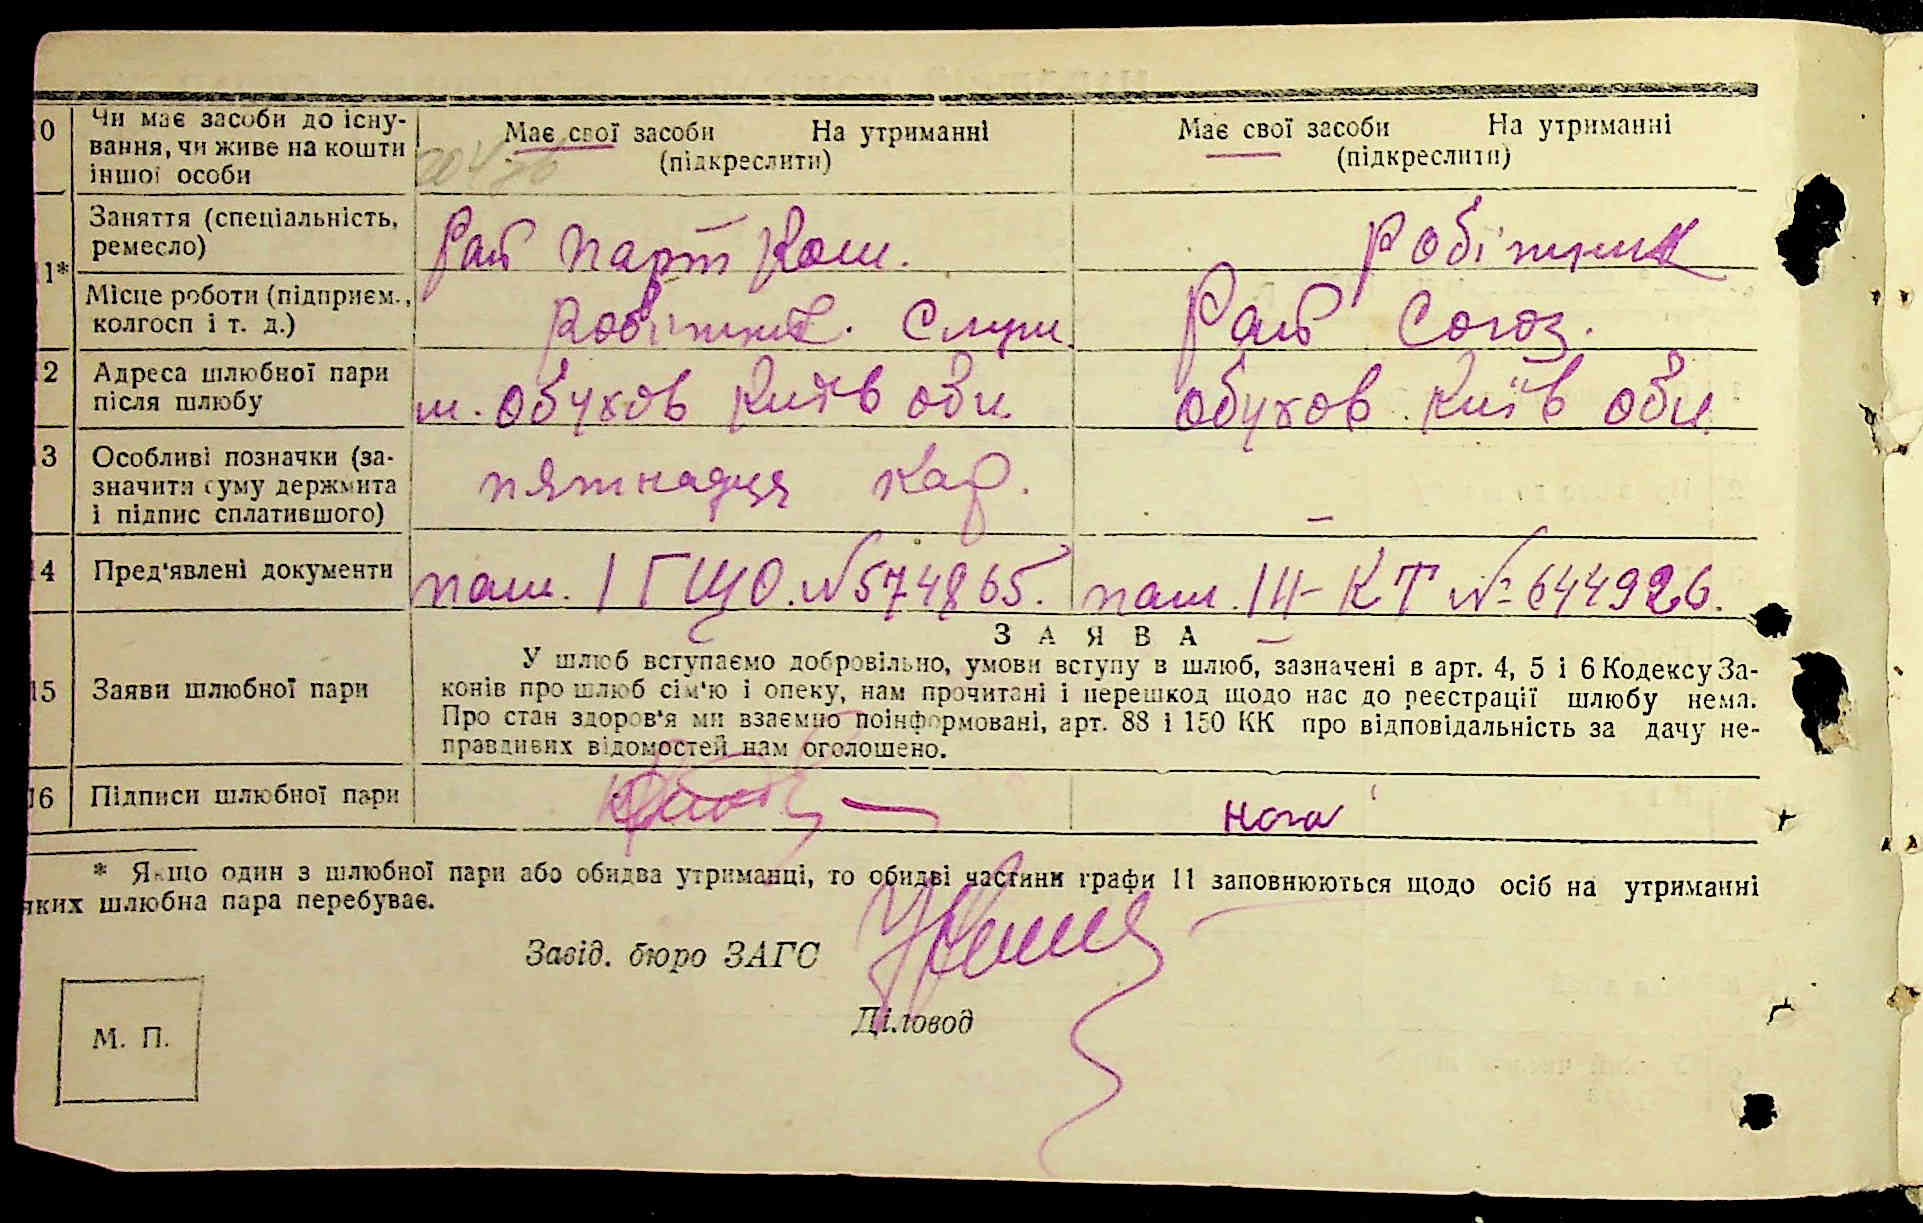 0 Чи має засоби до існу-
вання, чи живе на кошти
іншої особи
Має свої засоби На утриманні
(підкреслити)
Має свої засоби На утриманні
(підкреслити)
1* Заняття (спеціальність,
ремесло)
Рай Парт Ком.
Робітник
Місце роботи (підприєм.,
колгосп і т. д.)
Робітник. Служ.
Рай Союз.
2 Адреса шлюбної пари
після шлюбу
м. Обухов Київ обл
Обухов Київ обл
3 Особливі позначки (за-
значити суму держмита
і підпис сплатившого)
пятнадця кар.
–
14 Пред'явлені документи
паш. І ГЩО. № 574865.
паш. ІІІ-КТ № 644926.
15 Заяви шлюбної пари
ЗАЯВА
У шлюб вступаємо добровільно, умови вступу в шлюб, зазначені в арт. 4, 5 і 6 Кодексу За-
конів про шлюб сім'ю і опеку, нам прочитані і перешкод щодо нас до реєстрації шлюбу нема.
Про стан здоров'я ми взаємно поінформовані, арт. 88 і 150 КК про відповідальність за дачу не-
правдивих відомостей нам оголошено.
16 Підписи шлюбної пари
* Якщо один з шлюбної пари або обидва утриманці, то обидві частини графи 11 заповнюються щодо осіб на утриманні
яких шлюбна пара перебуває.
Завід. бюро ЗАГС
Діловод
М. П.